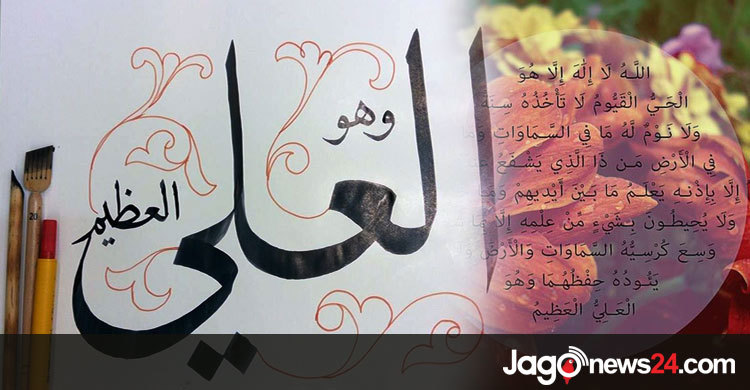 وهو
العلي
العظيم
20
اللَّـهُ لَا إِلَٰهَ إِلَّا هُوَ
الْحَيُّ الْقَيُّومُ لَا تَأْخُذُهُ سِنَةٌ
وَلَا نَوْمٌ لَّهُ مَا فِي السَّمَاوَاتِ وَمَا
فِي الْأَرْضِ مَن ذَا الَّذِي يَشْفَعُ
إِلَّا بِإِذْنِهِ يَعْلَمُ مَا بَيْنَ أَيْدِيهِمْ وَمَا
وَلَا يُحِيطُونَ بِشَيْءٍ مِّنْ عِلْمِهِ إِلَّا
وَسِعَ كُرْسِيُّهُ السَّمَاوَاتِ وَالْأَرْضَ
يَئُودُهُ حِفْظُهُمَا وَهُوَ
الْعَلِيُّ الْعَظِيمُ
Jagonews24.com